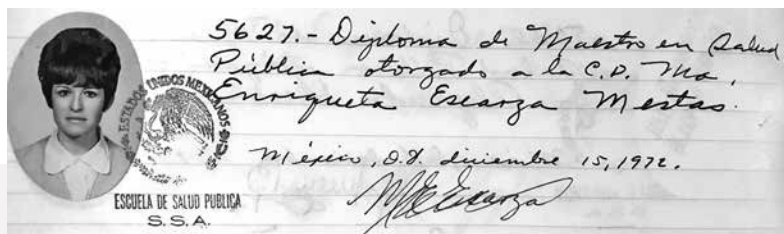 5627.- Diploma de Maestro en Salud
Pública otorgado a la C.D. Ma.
Enriqueta Escarza Mestas.
México, D.F. diciembre 15, 1972.
ESTADOS UNIDOS MEXICANOS
ESCUELA DE SALUD PUBLICA
S.S.A.
MEEscarza